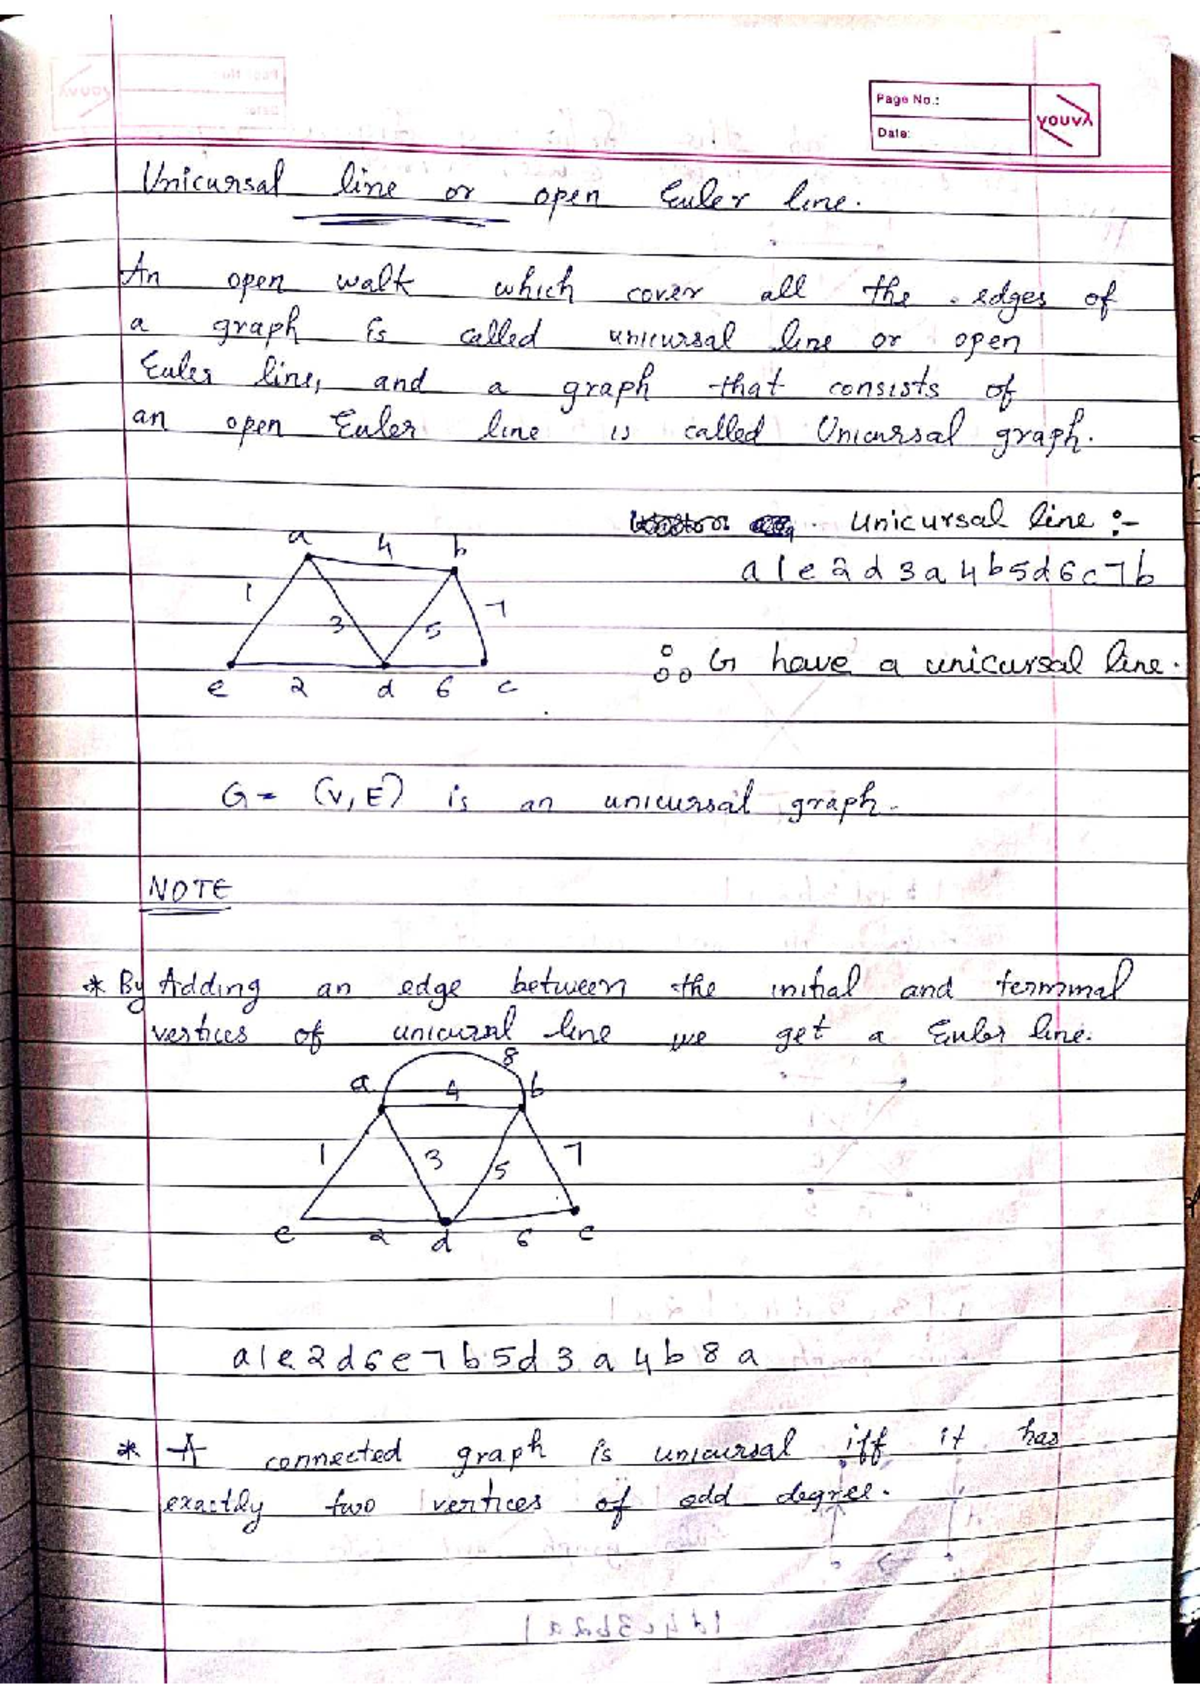 Page No.:
Date:
YOUVA
Unicursal line or open Euler line.
An open walk which cover all the edges of
a graph is called unicursal line or open
Euler line, and a graph that consists of
an open Euler line is called Unicursal graph.
Unicursal line :-
a 1 e 2 d 3 a 4 b 5 d 6 c 7 b
a 4 b
1 3 5 7
e 2 d 6 c
∴ G have a unicursal line.
G = (V, E) is an unicursal graph.
NOTE
* By Adding an edge between the initial and terminal
vertices of unicursal line we get a Euler line.
8
a 4 b
1 3 5 7
e 2 d 6 c
a 1 e 2 d 6 c 7 b 5 d 3 a 4 b 8 a
* A connected graph is unicursal iff it has
exactly two vertices of odd degree.